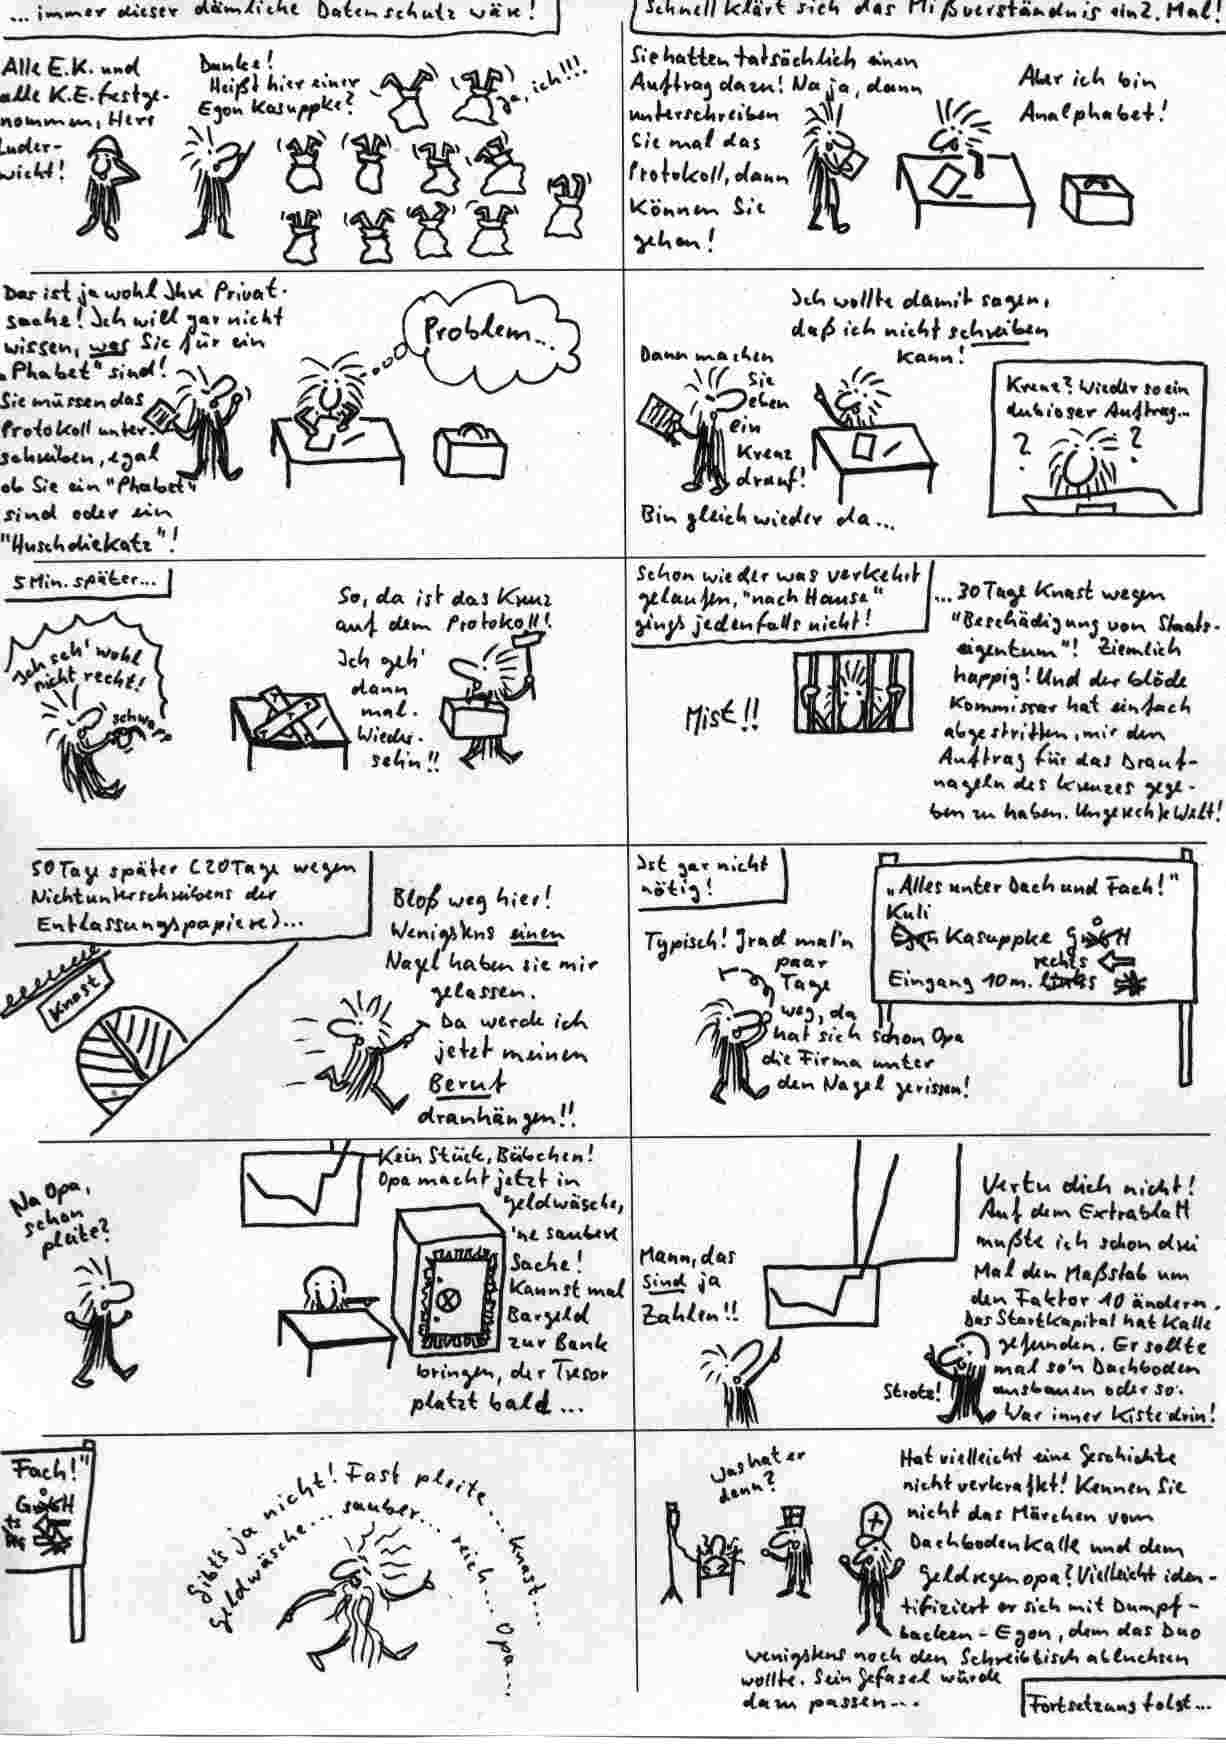 ... immer dieser dämliche Datenschutz wär!
Alle E.K. und
alle K.E. festge-
nommen, Herr
Luder-
wicht!
Danke!
Heißt hier einer
Egon Kasuppke?
Ja, ich!!!
Schnell klärt sich das Mißverständnis ein 2. Mal!
Sie hatten tatsächlich einen
Auftrag dazu! Na ja, dann
unterschreiben
Sie mal das
Protokoll, dann
können Sie
gehen!
Aber ich bin
Analphabet!
Das ist ja wohl Ihre Privat-
sache! Ich will gar nicht
wissen, was Sie für ein
"Phabet" sind!
Sie müssen das
Protokoll unter-
schreiben, egal
ob Sie ein "Phabet"
sind oder ein
"Huschdiekatz"!
Problem...
Ich wollte damit sagen,
daß ich nicht schreiben
kann!
Dann machen
Sie
eben
ein
Kreuz
drauf!
Bin gleich wieder da...
Kreuz? Wieder so ein
dubioser Auftrag...
? ?
5 Min. später...
Ich seh' wohl
nicht recht!
So, da ist das Kreuz
auf dem Protokoll!
Ich geh'
dann
mal.
Wieder-
sehn!!
Schon wieder was verkehrt
gelaufen, "nach Hause"
gings jedenfalls nicht!
Mist!!
...30 Tage Knast wegen
"Beschädigung von Staats-
eigentum"! Ziemlich
happig! Und der blöde
Kommissar hat einfach
abgestritten, mir den
Auftrag für das Drauf-
nageln des Kreuzes gege-
ben zu haben. Ungerechte Welt!
50 Tage später (20 Tage wegen
Nichtunterschreibens der
Entlassungspapiere)...
Knast
Bloß weg hier!
Wenigstens einen
Nagel haben sie mir
gelassen.
Da werde ich
jetzt meinen
Beruf
dranhängen!!
Ist gar nicht
nötig!
Typisch! Grad mal'n
paar
Tage
weg, da
hat sich schon Opa
die Firma unter
den Nagel gerissen!
"Alles unter Dach und Fach!"
Kuli
Egon Kasuppke GmbH
rechts
Eingang 10 m. links
Na Opa,
schon
pleite?
Kein Stück, Bübchen!
Opa macht jetzt in
Geldwäsche,
'ne saubere
Sache!
Kannst mal
Bargeld
zur Bank
bringen, der Tresor
platzt bald...
Mann, das
sind ja
Zahlen!!
Vertu dich nicht!
Auf dem Extrablatt
mußte ich schon drei
Mal den Maßstab um
den Faktor 10 ändern.
Das Startkapital hat Kalle
gefunden. Er sollte
mal so'n Dachboden
ausbauen oder so.
War inner Kiste drin!
Strotz!
Fach!"
GmbH
ts
Gibts ja nicht! Fast pleite... Knast...
Geldwäsche... sauber... reich... Opa...
Was hat er
denn?
Hat vielleicht eine Geschichte
nicht verkraftet! Kennen Sie
nicht das Märchen vom
DachbodenKalle und dem
Geldregenopa? Vielleicht iden-
tifiziert er sich mit Dumpf-
backen-Egon, dem das Duo
wenigstens noch den Schreibtisch abluchsen
wollte. Sein Gefasel würde
dazu passen...
Fortsetzung folgt...